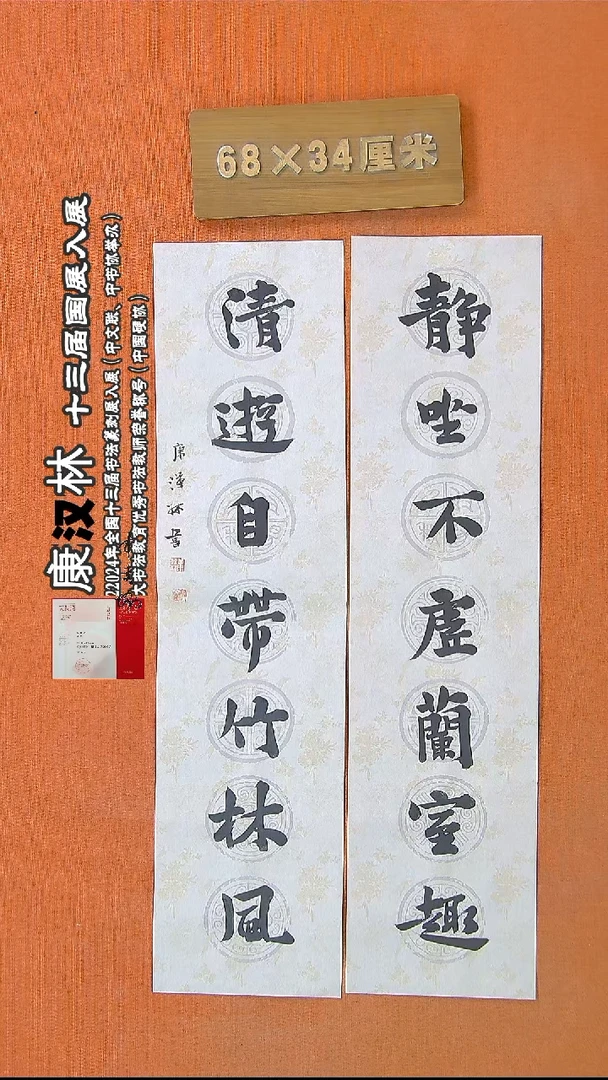 68×34厘米
静坐不虚蘭室趣
清遊自带竹林风
康漢林書
康汉林 十三届国展入展
22024年全国十三届书法篆刻展入展（中文联、中书协举办）
大书法教育优秀书法教师荣誉称号（中国硬协）